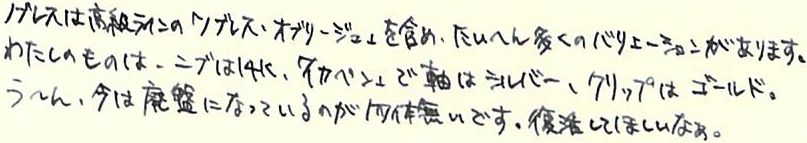 ノブレスは高級ラインの「ノブレス・オブリージュ」を含め、たいへん多くのバリエーションがあります。
わたしのものは、ニブは14K、「イカペン」で軸はシルバー、クリップはゴールド。
う〜ん、今は廃盤になっているのが勿体無いです。復活してほしいなぁ。